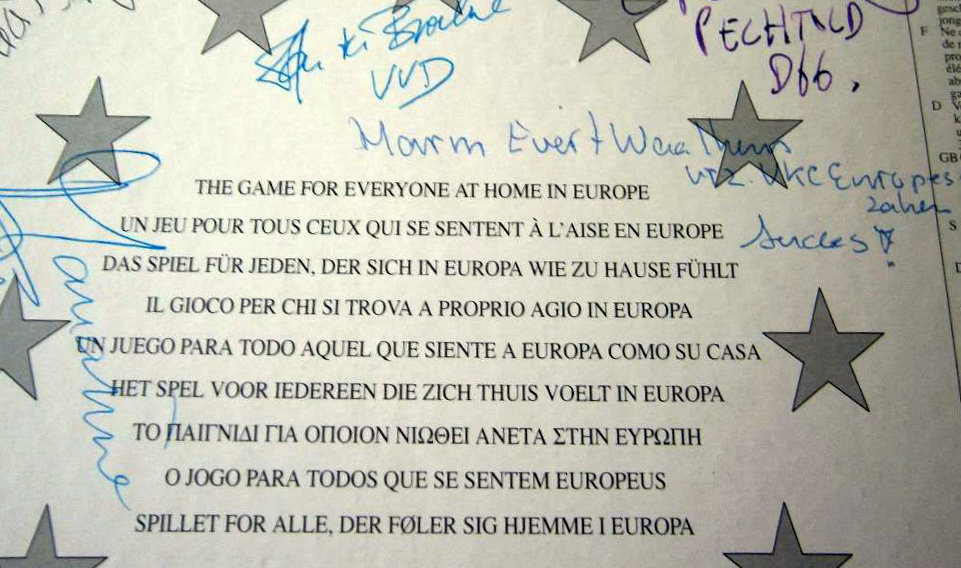 PECHTOLD
VVD
D66,
Evert
Europese
zaken
Succes!
THE GAME FOR EVERYONE AT HOME IN EUROPE
UN JEU POUR TOUS CEUX QUI SE SENTENT À L'AISE EN EUROPE
DAS SPIEL FÜR JEDEN, DER SICH IN EUROPA WIE ZU HAUSE FÜHLT
IL GIOCO PER CHI SI TROVA A PROPRIO AGIO IN EUROPA
UN JUEGO PARA TODO AQUEL QUE SIENTE A EUROPA COMO SU CASA
HET SPEL VOOR IEDEREEN DIE ZICH THUIS VOELT IN EUROPA
ΤΟ ΠΑΙΓΝΙΔΙ ΓΙΑ ΟΠΟΙΟΝ ΝΙΩΘΕΙ ΑΝΕΤΑ ΣΤΗΝ ΕΥΡΩΠΗ
O JOGO PARA TODOS QUE SE SENTEM EUROPEUS
SPILLET FOR ALLE, DER FØLER SIG HJEMME I EUROPA
F
D
GB
S